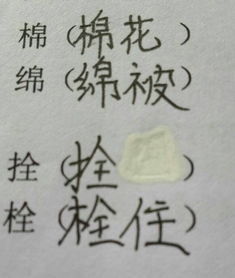 棉（棉花）
绵（绵被）
拴（拴）
栓（栓住）